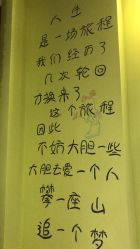 人生
是一场旅程
我们经历了
几次轮回
才换来了
这个旅程
因此
不妨大胆一些
大胆去爱一个人
攀一座山
追一个梦